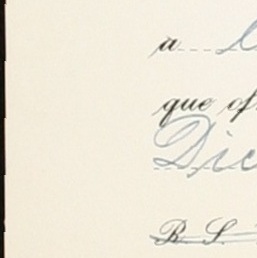 a
que of
Dic
R. S.